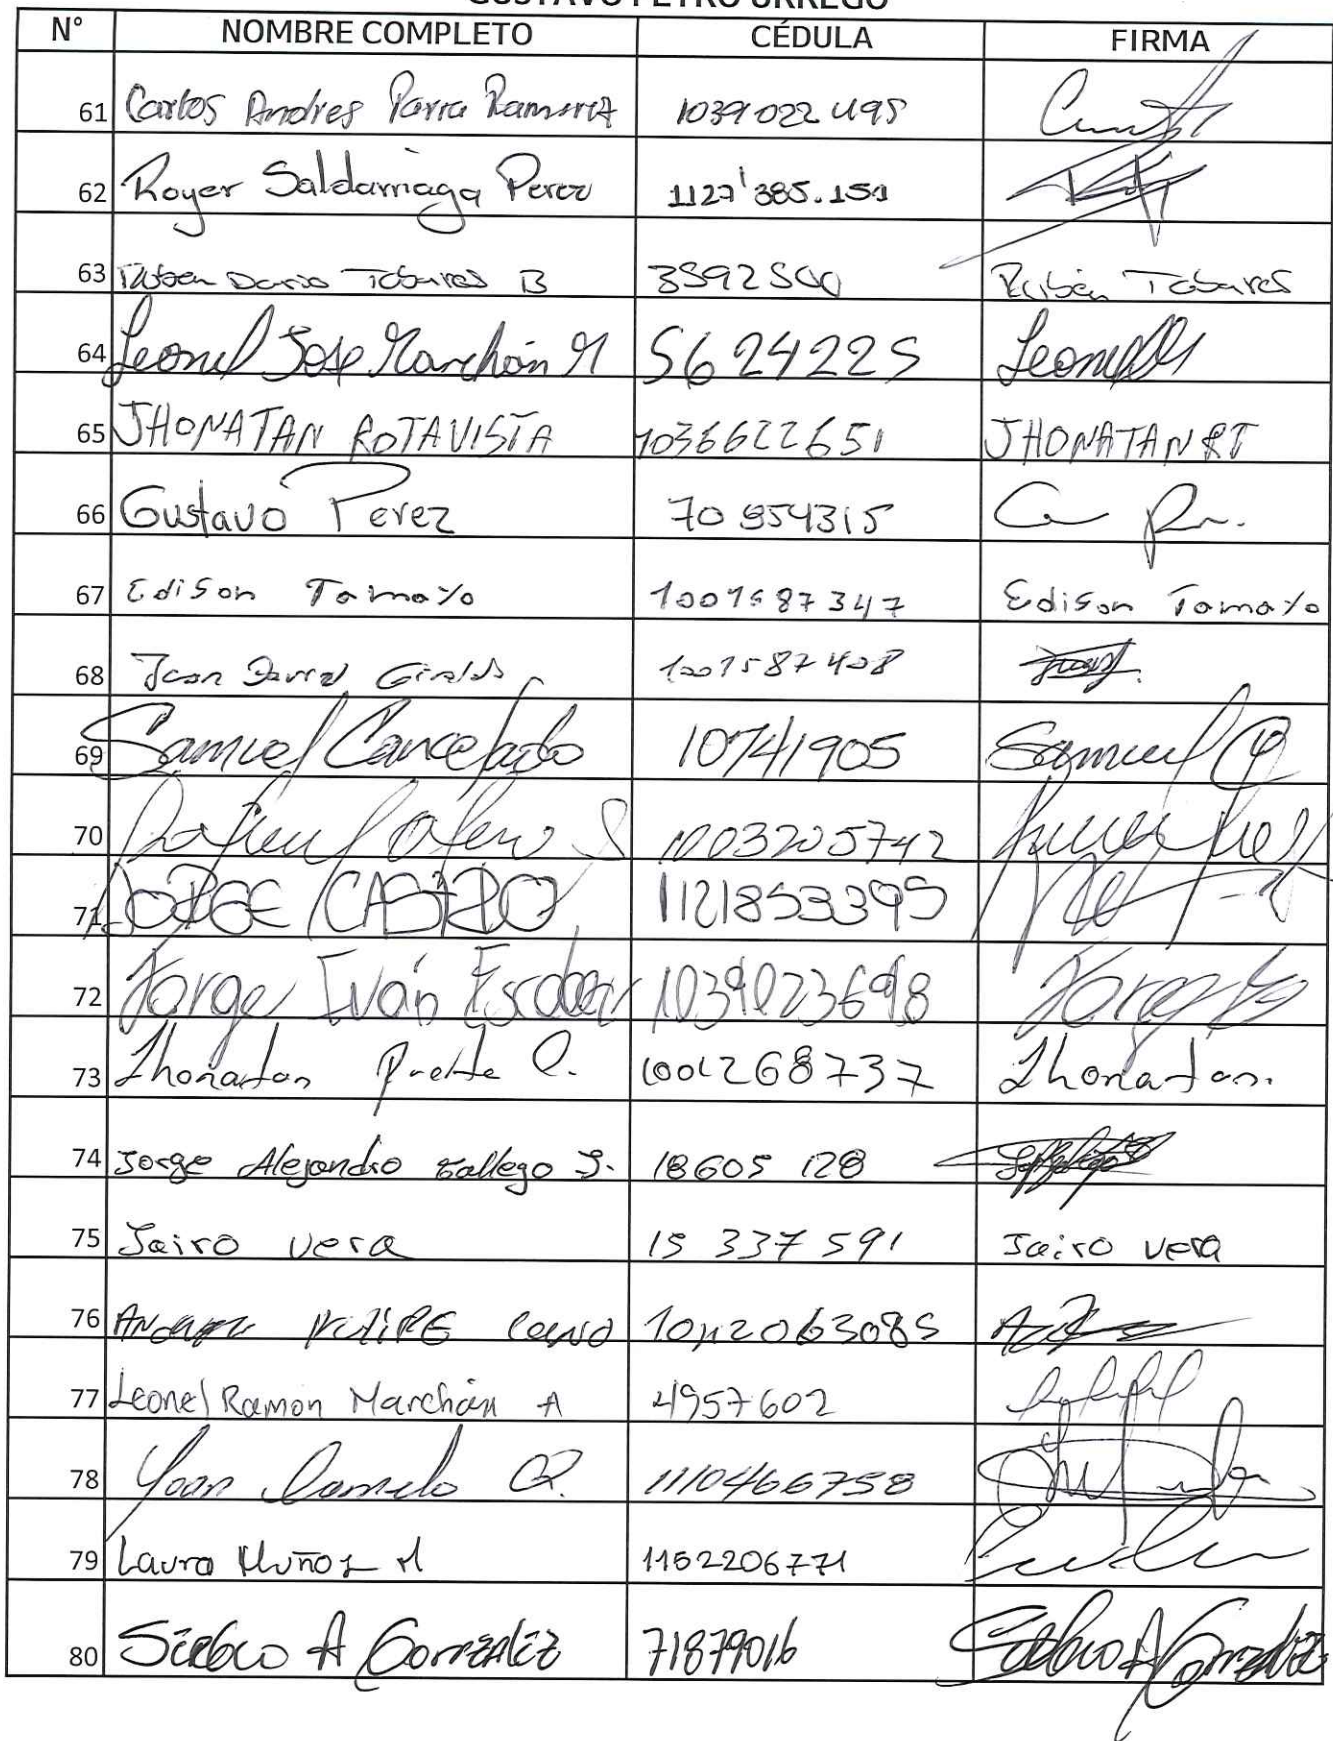 GUSTAVO PETRO URREGO
N° NOMBRE COMPLETO CÉDULA FIRMA
61 Carlos Andres Parra Ramirez 1039022495
62 Royer Saldarriaga Perez 1127'385.151
63 Ruben Dario Tobares B 3592500 Rubén Tobares
64 Leonel Jose Marchán M 5624225 Leonel M
65 JHONATAN ROTAVISTA 1036622651 JHONATAN RT
66 Gustavo Perez 70 954315
67 Edison Tamayo 1001587347 Edison Tamayo
68 Juan David Giraldo 1001587408
69 Samuel Cancelado 10741905 Samuel C
70 1003205742
71 JORGE CASTRO 1121853395
72 Jorge Iván Escobar 1039023698 Jorge
73 Jhonatan 1001268737 Jhonatan.
74 Jorge Alejandro Gallego J. 18605 128
75 Jairo vera 15 337 591 Jairo vera
76 FELIPE 1042063085
77 Leonel Ramon Marchán A 4957602
78 Yoan Camilo R. 1110466758
79 Laura Muñoz M 1152206771
80 A González 71879016 A González